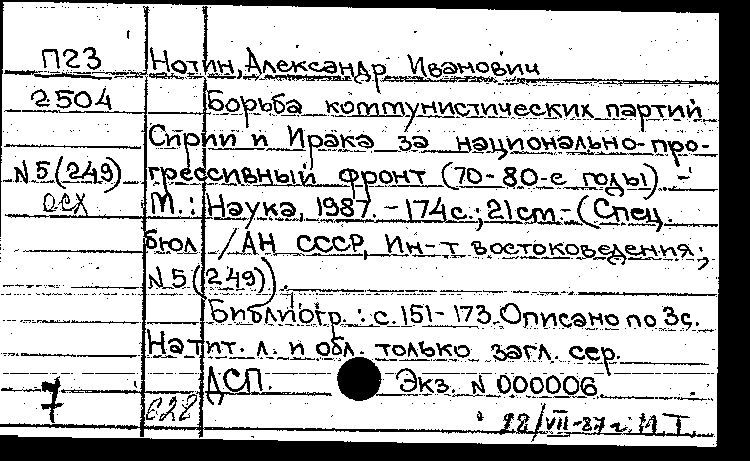 П23 Нотин, Александр Иванович
2504 Борьба коммунистических партий
Сирии и Ирака за национально-про-
N 5 (249) грессивный фронт (70-80-е годы) -
осх М.: Наука, 1987. - 174с.; 21cm - (Спец.
бюл / АН СССР, Ин-т востоковедения;
N 5 (249)).
Библиогр.: с. 151-173. Описано по 3с.
На тит. л. и обл. только загл. сер.
ДСП. Экз. N 000006.
7 628 /VII-87 г. М.Т.